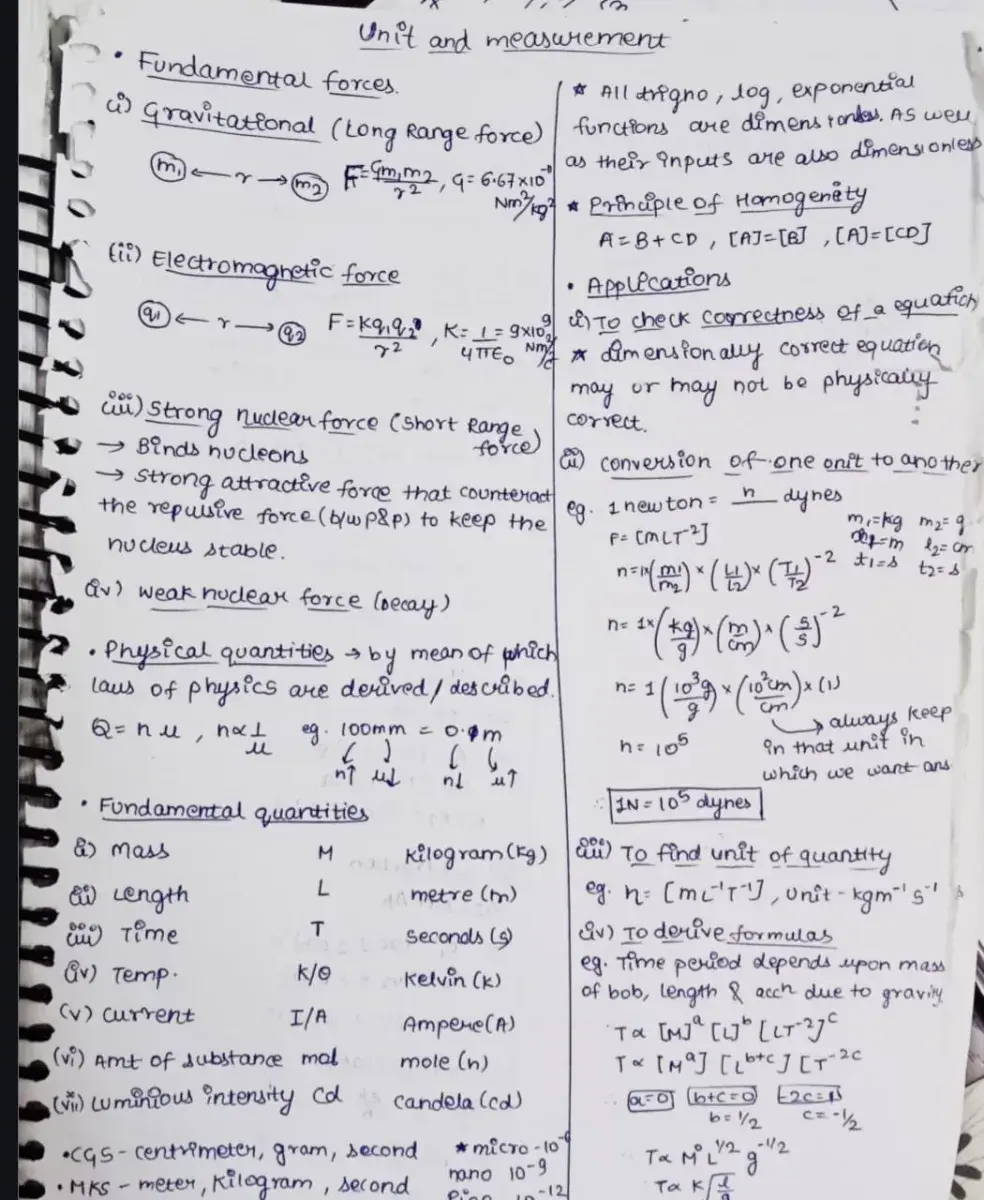 Unit and measurement
• Fundamental forces.
i) Gravitational (Long Range force)
m1 ← r → m2 F = Gm1m2/r², G = 6.67×10
Nm²/kg²
(ii) Electromagnetic force
q1 ← r → q2 F = Kq1q2/r², K = 1/4πε0 = 9×10⁹
Nm²/c
iii) Strong nuclear force (Short Range
force)
→ Binds nucleons
→ Strong attractive force that counteract
the repulsive force (b/w p&p) to keep the
nucleus stable.
iv) weak nuclear force (Decay)
• Physical quantities → by mean of which
laws of physics are derived/described.
Q = n u, n∝1/u eg. 100mm = 0.1m
n↑ u↓ n↓ u↑
• Fundamental quantities
i) Mass M Kilogram (Kg)
ii) Length L metre (m)
iii) Time T Seconds (s)
iv) Temp. K/θ Kelvin (K)
(v) Current I/A Ampere (A)
(vi) Amt of substance mol mole (n)
(vii) Luminious intensity Cd candela (cd)
• CGS - centimeter, gram, second
• MKS - meter, Kilogram, second
* micro - 10⁻⁶
nano 10⁻⁹
10⁻¹²
* All trigno, log, exponential
functions are dimensionless. As well
as their inputs are also dimensionless
* Principle of Homogenity
A = B + CD, [A]=[B], [A]=[CD]
• Applications
i) To check correctness of a equation
* dimensionally correct equation
may or may not be physically
correct.
ii) conversion of one unit to another
eg. 1 newton = n dynes
F = [MLT⁻²]
m1=kg m2=g
l1=m l2=cm
t1=s t2=s
n=1×(m1/m2)×(L1/L2)×(T1/T2)⁻²
n= 1×(kg/g)×(m/cm)×(s/s)⁻²
n= 1(10³g/g)×(10²cm/cm)×(1)
→ always keep
in that unit in
which we want ans
n = 10⁵
∴ 1N = 10⁵ dynes
iii) To find unit of quantity
eg. η = [ML⁻¹T⁻¹], unit - kgm⁻¹s⁻¹
iv) To derive formulas
eg. Time period depends upon mass
of bob, length & accn due to gravity
T∝ [M]ᵃ [L]ᵇ [LT⁻²]ᶜ
T∝ [Mᵃ] [Lᵇ⁺ᶜ] [T⁻²ᶜ
a=0 b+c=0 -2c=1
b=1/2 c=-1/2
T∝ M⁰ L^1/2 g^-1/2
T∝ K√l/g